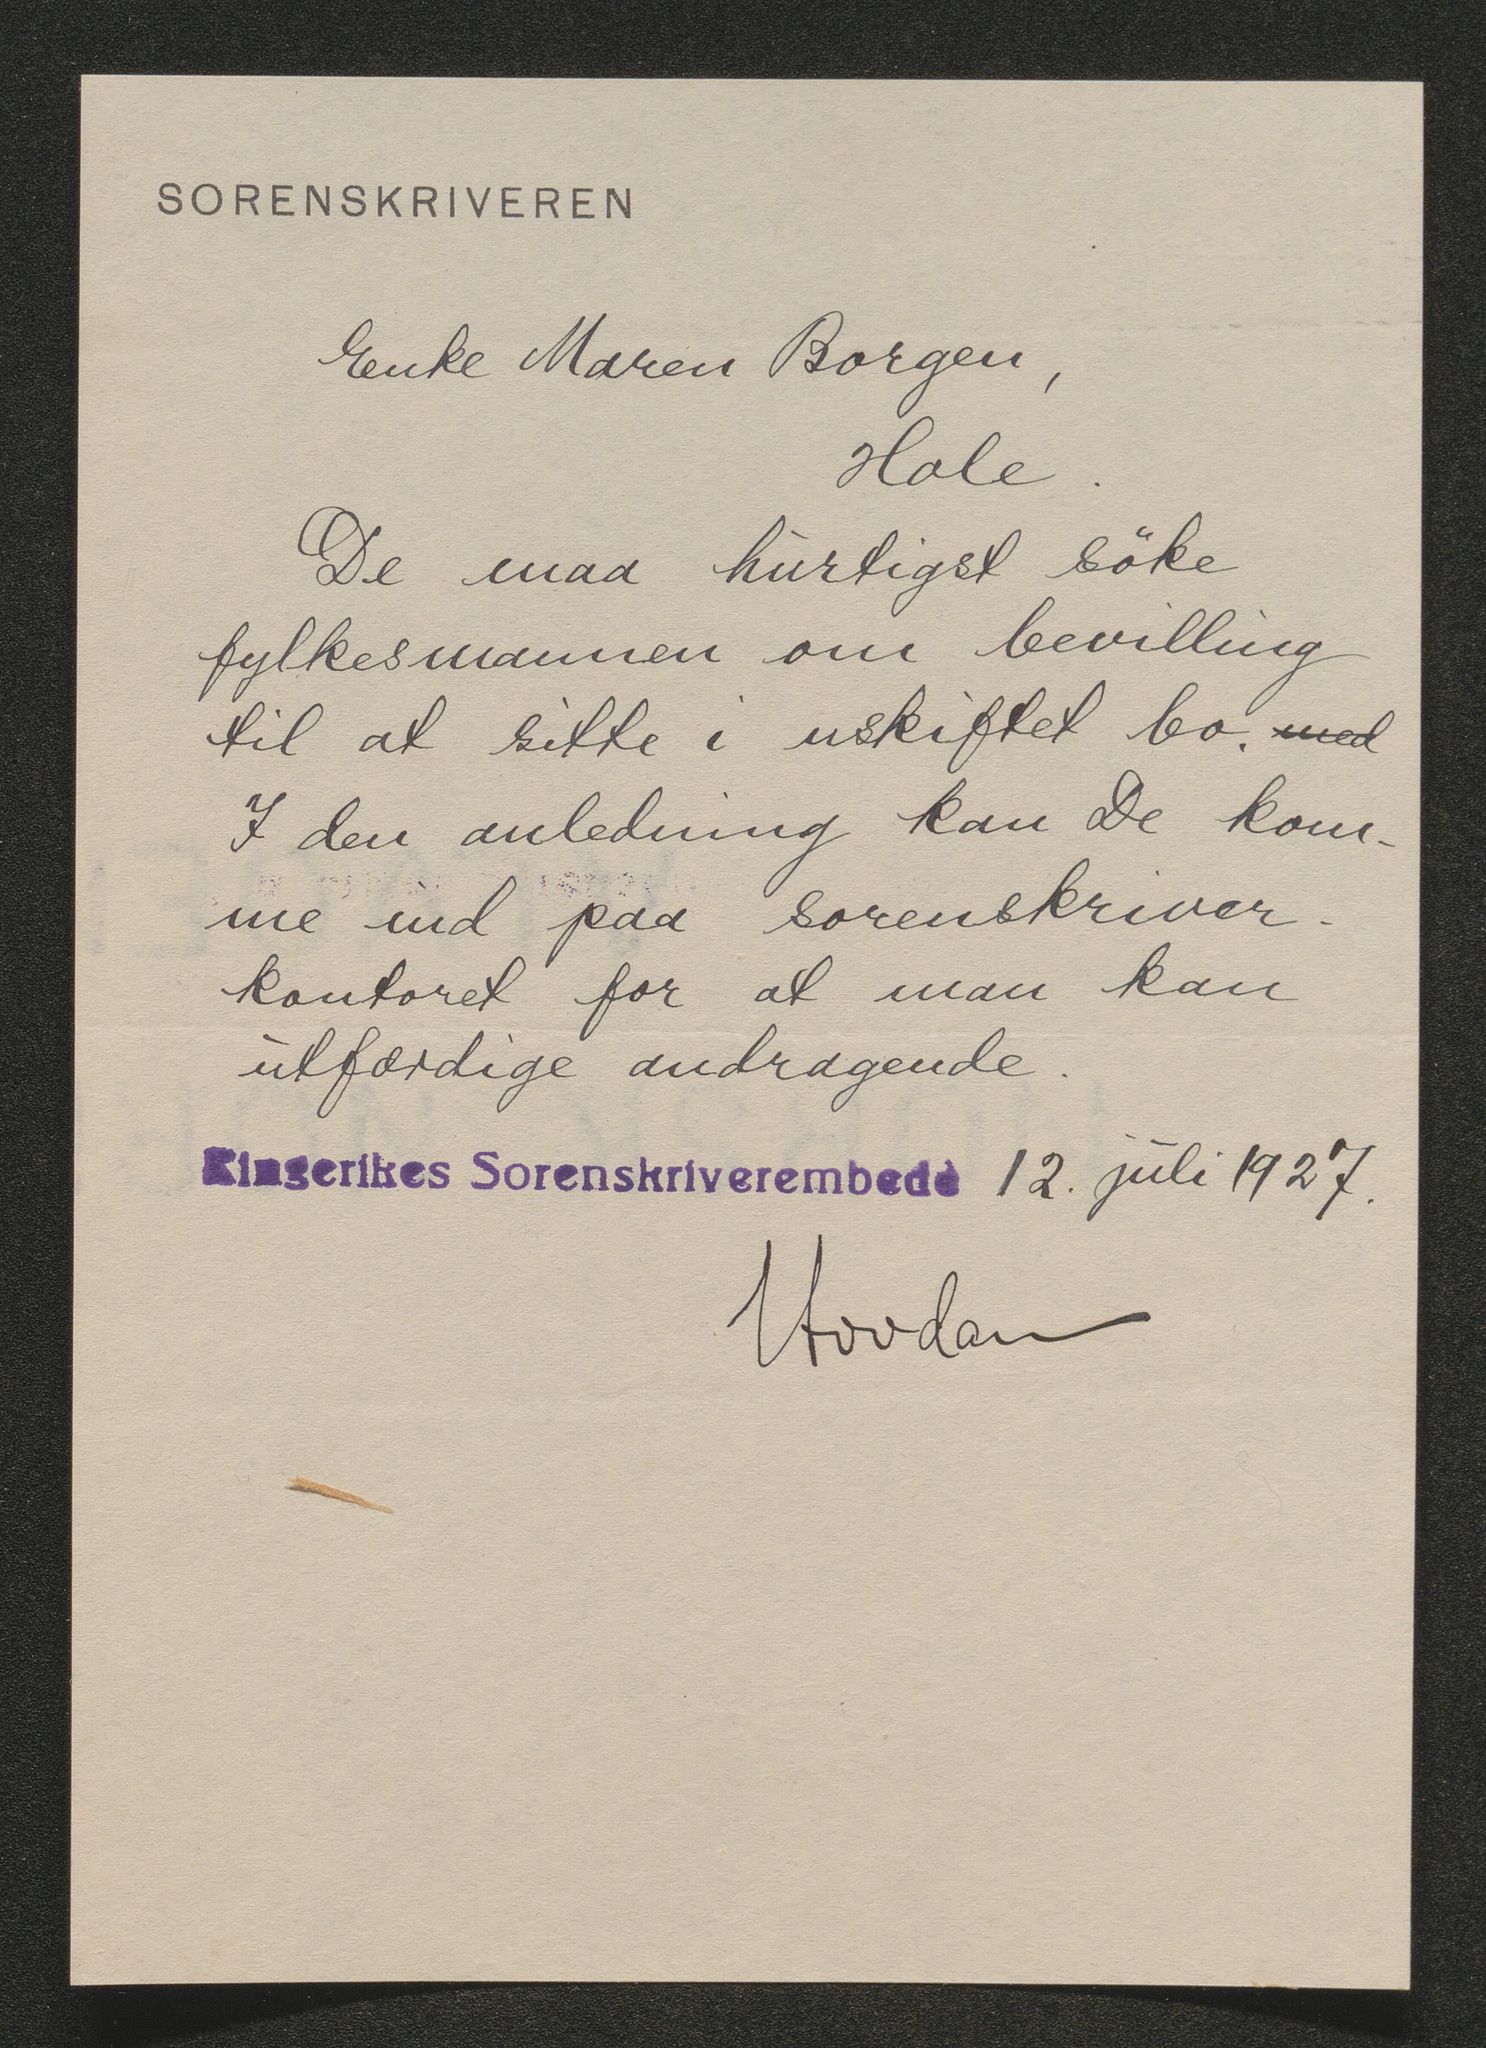 SORENSKRIVEREN
Enke Maren Borgen,
Hole.
De maa hurtigst söke
fylkesmannen om bevilling
til at sitte i uskiftet bo. med
I den anledning kan De kom-
me ind paa sorenskriver-
kontoret for at man kan
utfærdige andragende.
Ringerikes Sorenskriverembede 12. juli 1927.